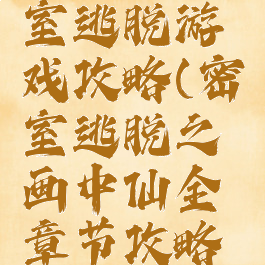 室逃脱游
戏攻略(密
室逃脱之
画中仙全
章节攻略